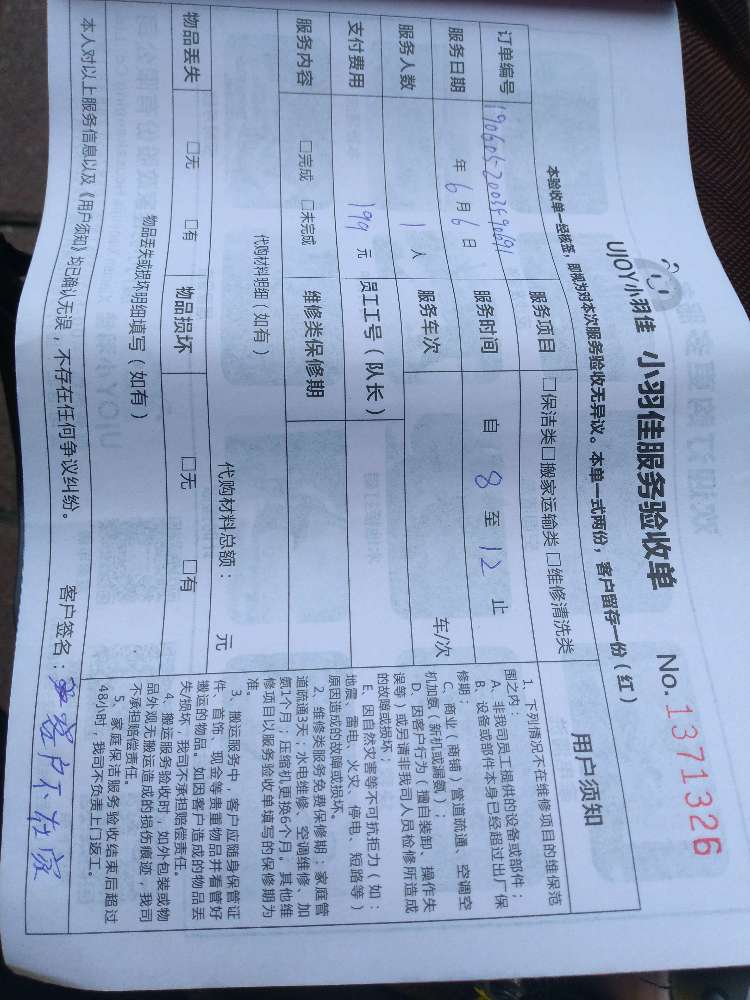 UJOY小羽佳 小羽佳服务验收单 No. 1371326
本验收单一经核签，即视为对本次服务验收无异议。本单一式两份，客户留存一份（红）
订单编号 服务项目 □保洁类□搬家运输类 □维修清洗类
服务日期 年 6 月 6 日 服务时间 自 8 至 12 止
服务人数 1 人 服务车次 车/次
支付费用 199 元 员工工号（队长）
服务内容 □完成 □未完成 维修类保修期
代购材料明细（如有）
代购材料总额： 元
物品丢失 □无 □有 物品损坏 □无 □有
物品丢失或损坏明细填写（如有）
本人对以上服务信息以及《用户须知》均已确认无误，不存在任何争议纠纷。 客户签名：客户不在家
用户须知
1、下列情况不在维修项目的维保范
围之内：
A、非我司员工提供的设备或部件；
B、设备或部件本身已经超过出厂保
修期；
C、商业（商铺）管道疏通、空调空
机加氨（新机或漏氨）；
D、因客户行为（擅自装卸、操作失
误等）或另请非我司人员检修所造成
的故障或损坏；
E、因自然灾害等不可抗拒力（如：
地震、雷电、火灾、停电、短路等）
原因造成的故障或损坏。
2、维修类服务免费保修期：家庭管
道疏通3天；水电维修、空调维修、加
氨1个月；压缩机更换6个月。其他维
修项目以服务验收单填写的保修期为
准。
3、搬运服务中，客户应随身保管证
件、首饰、现金等贵重物品并看管好
搬运的物品。如因客户造成的物品丢
失/损坏，我司不承担赔偿责任。
4、搬运服务验收时，如外包装或物
品外观无搬运造成的损伤痕迹，我司
不承担赔偿责任。
5、家庭保洁服务验收结束后超过
48小时，我司不负责上门返工。